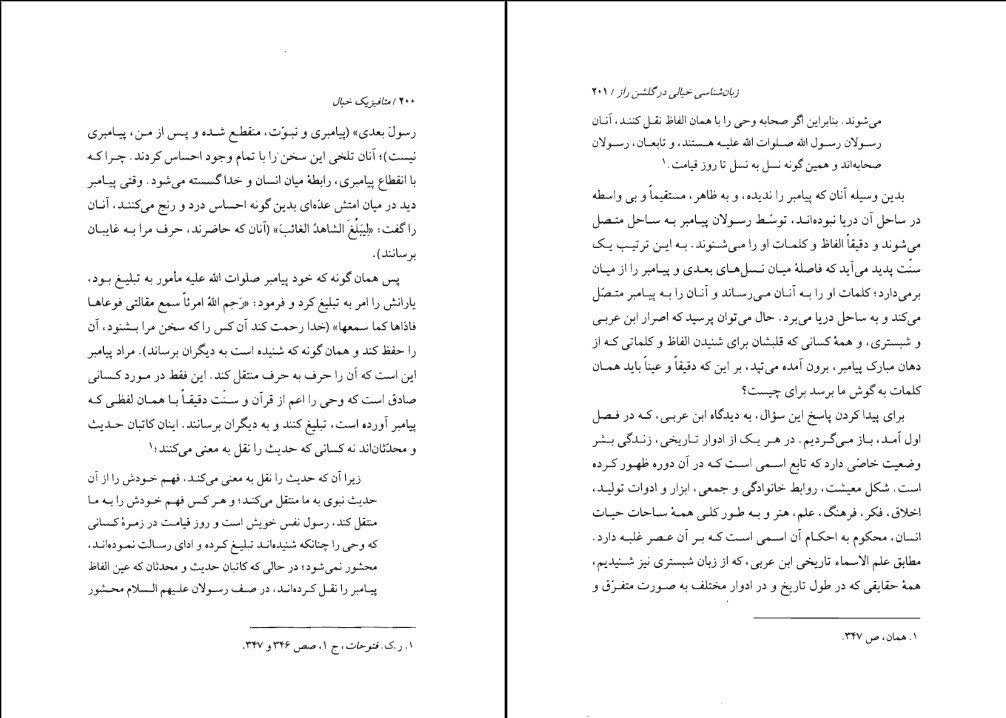 ۲۰۰ / متافیزیک خیال
رسولَ بعدی» (پیامبری و نبوّت، منقطع شده و پس از من، پیامبری
نیست)؛ آنان تلخی این سخن را با تمام وجود احساس کردند. چرا که
با انقطاع پیامبری، رابطهٔ میان انسان و خدا گسسته می‌شود. وقتی پیامبر
دید در میان امتش عدّه‌ای بدین گونه احساس درد و رنج می‌کنند، آنان
را گفت: «لِیَبلِّغَ الشاهدُ الغائبَ» (آنان که حاضرند، حرف مرا به غایبان
برسانند).
پس همان گونه که خود پیامبر صلوات الله علیه مأمور به تبلیغ بود،
یارانش را امر به تبلیغ کرد و فرمود: «رَحِم اللهُ امرئاً سمع مقالتی فوعاها
فاذاها کما سمعها» (خدا رحمت کند آن کس را که سخن مرا بشنود، آن
را حفظ کند و همان گونه که شنیده است به دیگران برساند). مراد پیامبر
این است که آن را حرف به حرف منتقل کند. این فقط در مورد کسانی
صادق است که وحی را اعم از قرآن و سنّت دقیقاً با همان لفظی که
پیامبر آورده است، تبلیغ کنند و به دیگران برسانند. اینان کاتبان حدیث
و محدّثان‌اند نه کسانی که حدیث را نقل به معنی می‌کنند؛۱
زیرا آن که حدیث را نقل به معنی می‌کند، فهم خودش را از آن
حدیث نبوی به ما منتقل می‌کند؛ و هر کس فهم خودش را به ما
منتقل کند، رسول نفس خویش است و روز قیامت در زمرهٔ کسانی
که وحی را چنانکه شنیده‌اند تبلیغ کرده و ادای رسالت نموده‌اند،
محشور نمی‌شود؛ در حالی که کاتبان حدیث و محدثان که عین الفاظ
پیامبر را نقل کرده‌اند، در صف رسولان علیهم السلام محشور
۱. ر.ک. فتوحات، ج ۱، صص ۳۴۶ و ۳۴۷.
زبان‌شناسی خیالی در گلشن راز / ۲۰۱
می‌شوند. بنابراین اگر صحابه وحی را با همان الفاظ نقل کنند، آنان
رسولان رسول الله صلوات الله علیه هستند، و تابعان، رسولان
صحابه‌اند و همین گونه نسل به نسل تا روز قیامت.۱
بدین وسیله آنان که پیامبر را ندیده، و به ظاهر، مستقیماً و بی واسطه
در ساحل آن دریا نبوده‌اند، توسّط رسولان پیامبر به ساحل متصل
می‌شوند و دقیقاً الفاظ و کلمات او را می‌شنوند. به این ترتیب یک
سنّت پدید می‌آید که فاصلهٔ میان نسل‌های بعدی و پیامبر را از میان
برمی‌دارد؛ کلمات او را به آنان می‌رساند و آنان را به پیامبر متصّل
می‌کند و به ساحل دریا می‌برد. حال می‌توان پرسید که اصرار ابن عربی
و شبستری، و همهٔ کسانی که قلبشان برای شنیدن الفاظ و کلماتی که از
دهان مبارک پیامبر، برون آمده می‌تپد، بر این که دقیقاً و عیناً باید همان
کلمات به گوش ما برسد برای چیست؟
برای پیدا کردن پاسخ این سؤال، به دیدگاه ابن عربی، که در فصل
اول آمد، باز می‌گردیم. در هر یک از ادوار تاریخی، زندگی بشر
وضعیت خاصّی دارد که تابع اسمی است که در آن دوره ظهور کرده
است. شکل معیشت، روابط خانوادگی و جمعی، ابزار و ادوات تولید،
اخلاق، فکر، فرهنگ، علم، هنر و به طور کلی همهٔ ساحات حیات
انسان، محکوم به احکام آن اسمی است که بر آن عصر غلبه دارد.
مطابق علم الاسماء تاریخی ابن عربی، که از زبان شبستری نیز شنیدیم،
همهٔ حقایقی که در طول تاریخ و در ادوار مختلف به صورت متفرّق و
۱. همان، ص ۳۴۷.